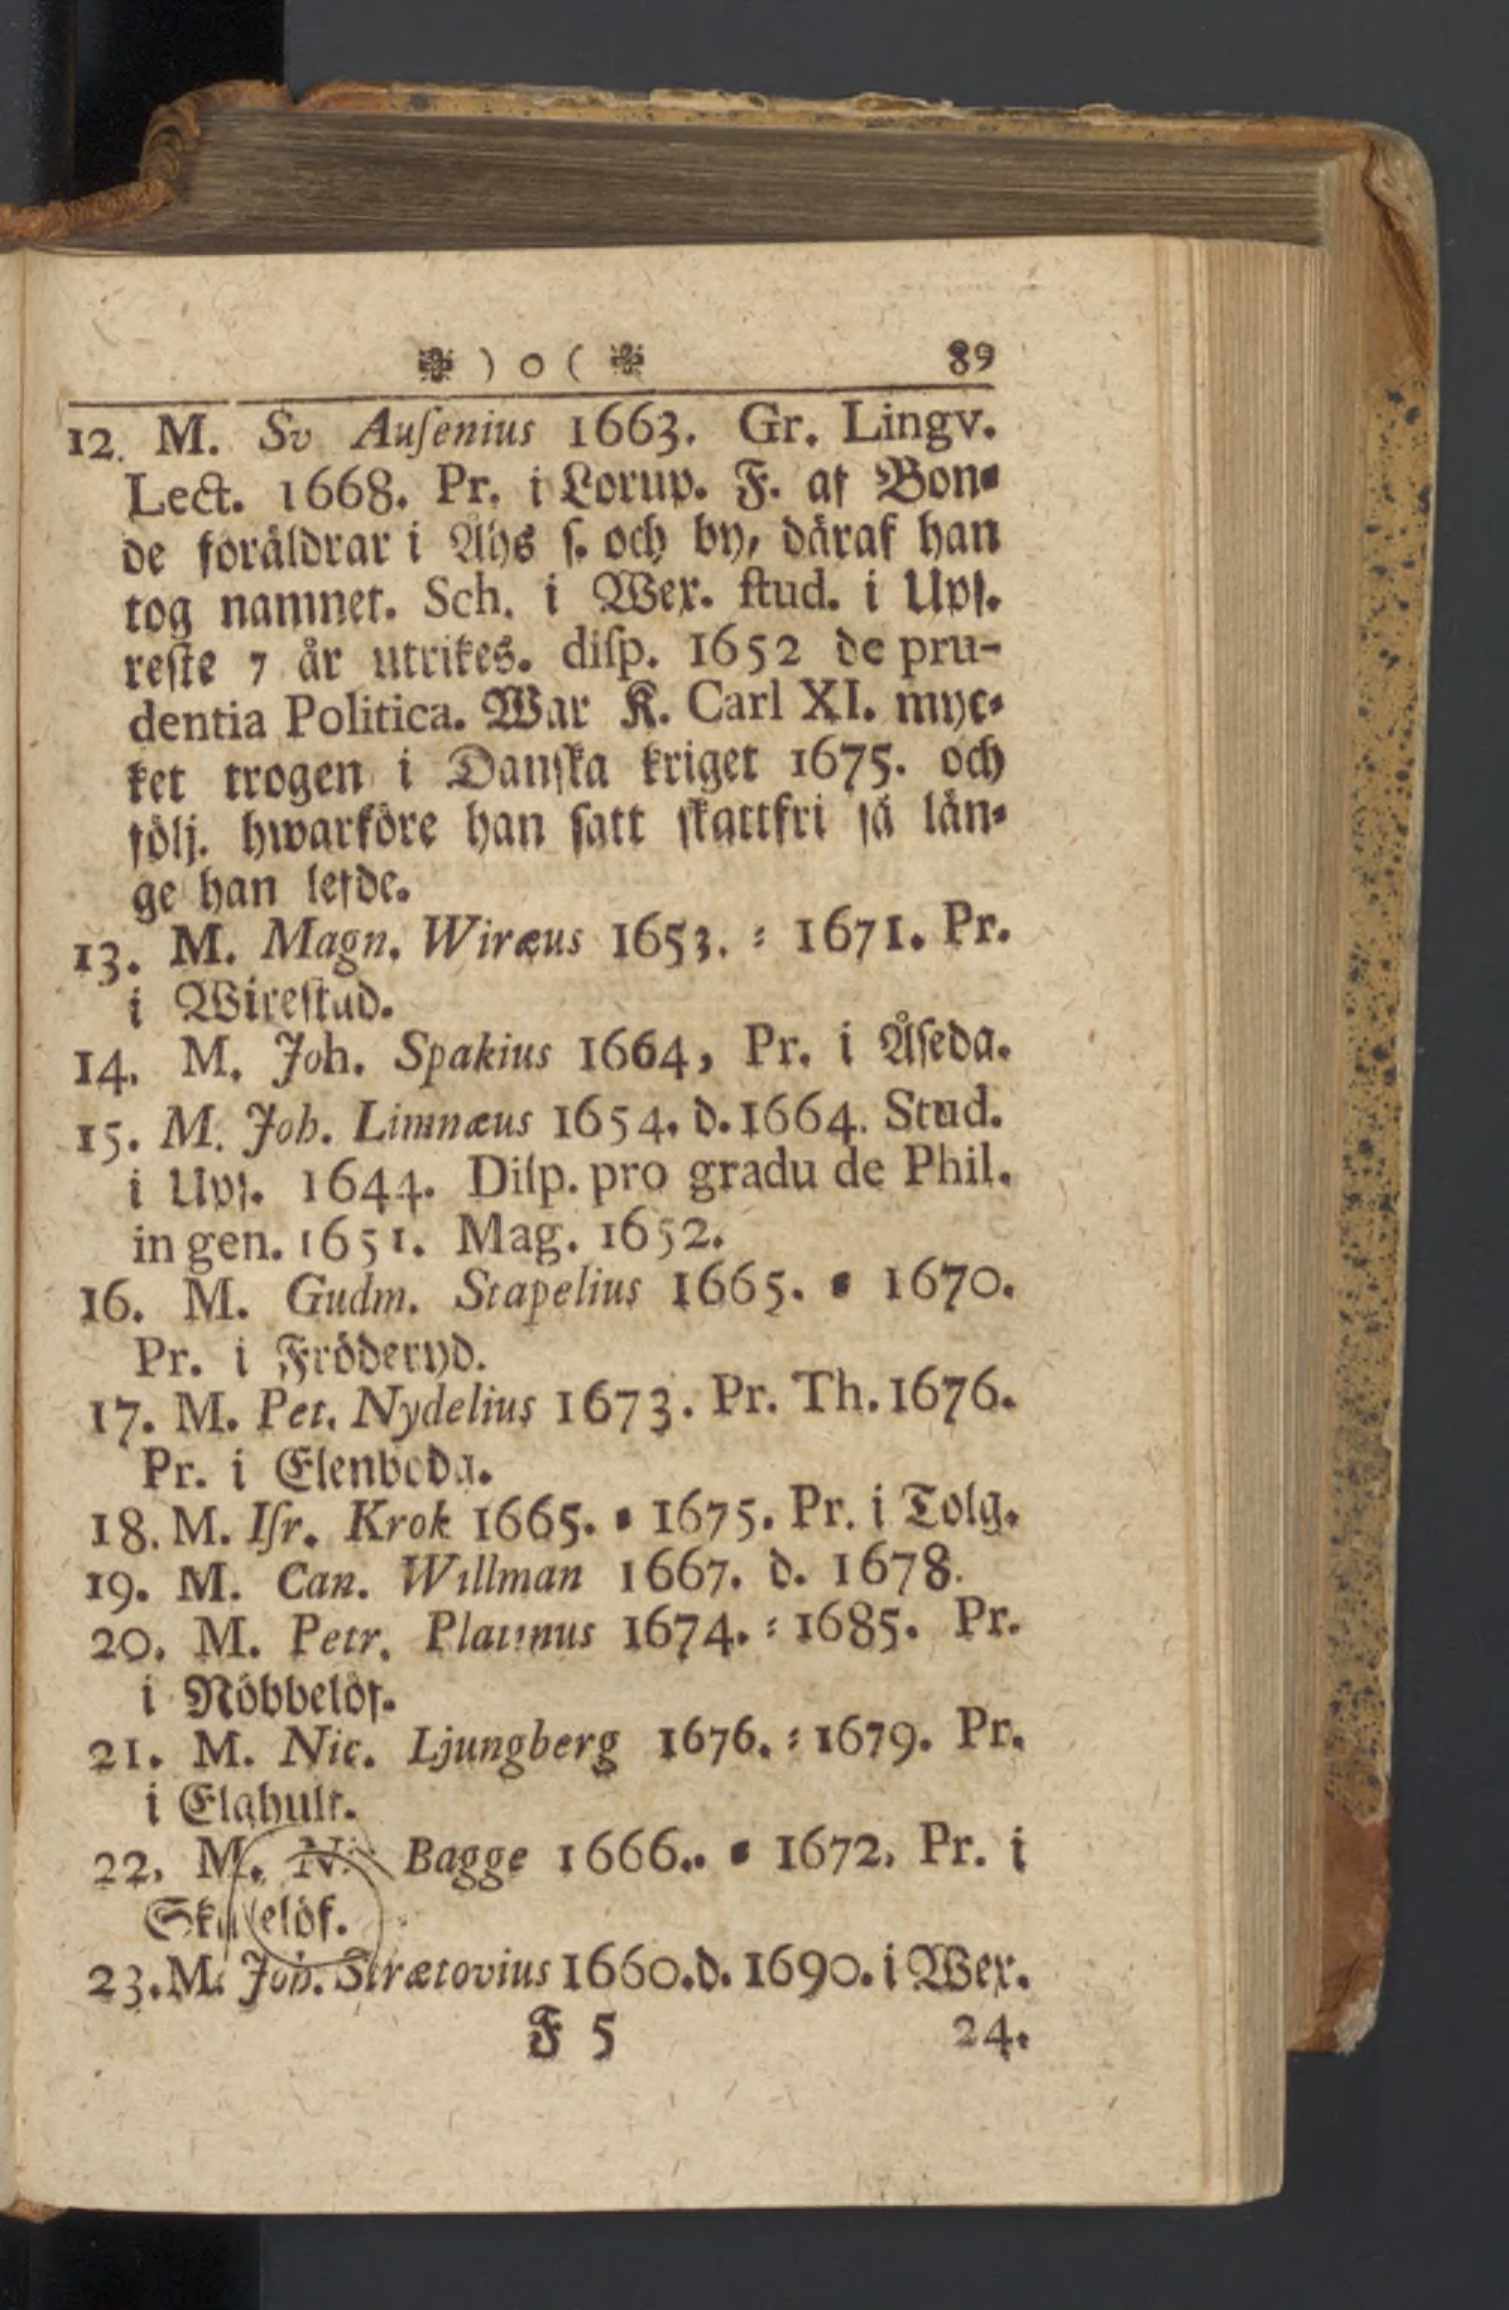 ❉ ) o ( ❉ 89
12. M. Sv Auſenius 1663. Gr. Lingv.
Lect. 1668. Pr. i Torup. F. af Bon⸗
de föräldrar i Åhs ſ. och by, däraf han
tog namnet. Sch. i Wex. ſtud. i Upſ.
reſte 7 år utrikes. diſp. 1652 de pru-
dentia Politica. War K. Carl XI. myc⸗
ket trogen i Danſka kriget 1675. och
följ. hwarföre han ſatt ſkattfri ſå län⸗
ge han lefde.
13. M. Magn. Wiræus 1653. ⸗ 1671. Pr.
i Wireſtad.
14. M. Joh. Spakius 1664, Pr. i Åſeda.
15. M. Joh. Limnæus 1654. d. 1664. Stud.
i Upſ. 1644. Diſp. pro gradu de Phil.
in gen. 1651. Mag. 1652.
16. M. Gudm. Stapelius 1665. ⸗ 1670.
Pr. i Fröderyd.
17. M. Pet. Nydelius 1673. Pr. Th. 1676.
Pr. i Elenboda.
18. M. Iſr. Krok 1665. ⸗ 1675. Pr. i Tolg.
19. M. Can. Willman 1667. d. 1678.
20. M. Petr. Platinus 1674. ⸗ 1685. Pr.
i Nöbbelöf.
21. M. Nic. Ljungberg 1676. ⸗ 1679. Pr.
i Elghult.
22. M. Bagge 1666.. ⸗ 1672. Pr. i
Skatelöf.
23. M. Joh. Strætovius 1660. d. 1690. i Wex.
F 5 24.